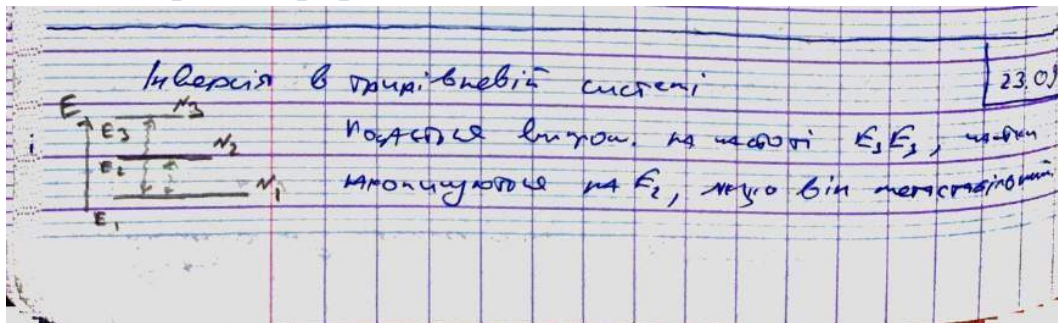 Інверсія в трирівневій системі
23.09
E
E3
N3
E2
N2
E1
N1
Подається випром. на частоті E1E3, частки
накопичуються на E2, якщо він метастабільний